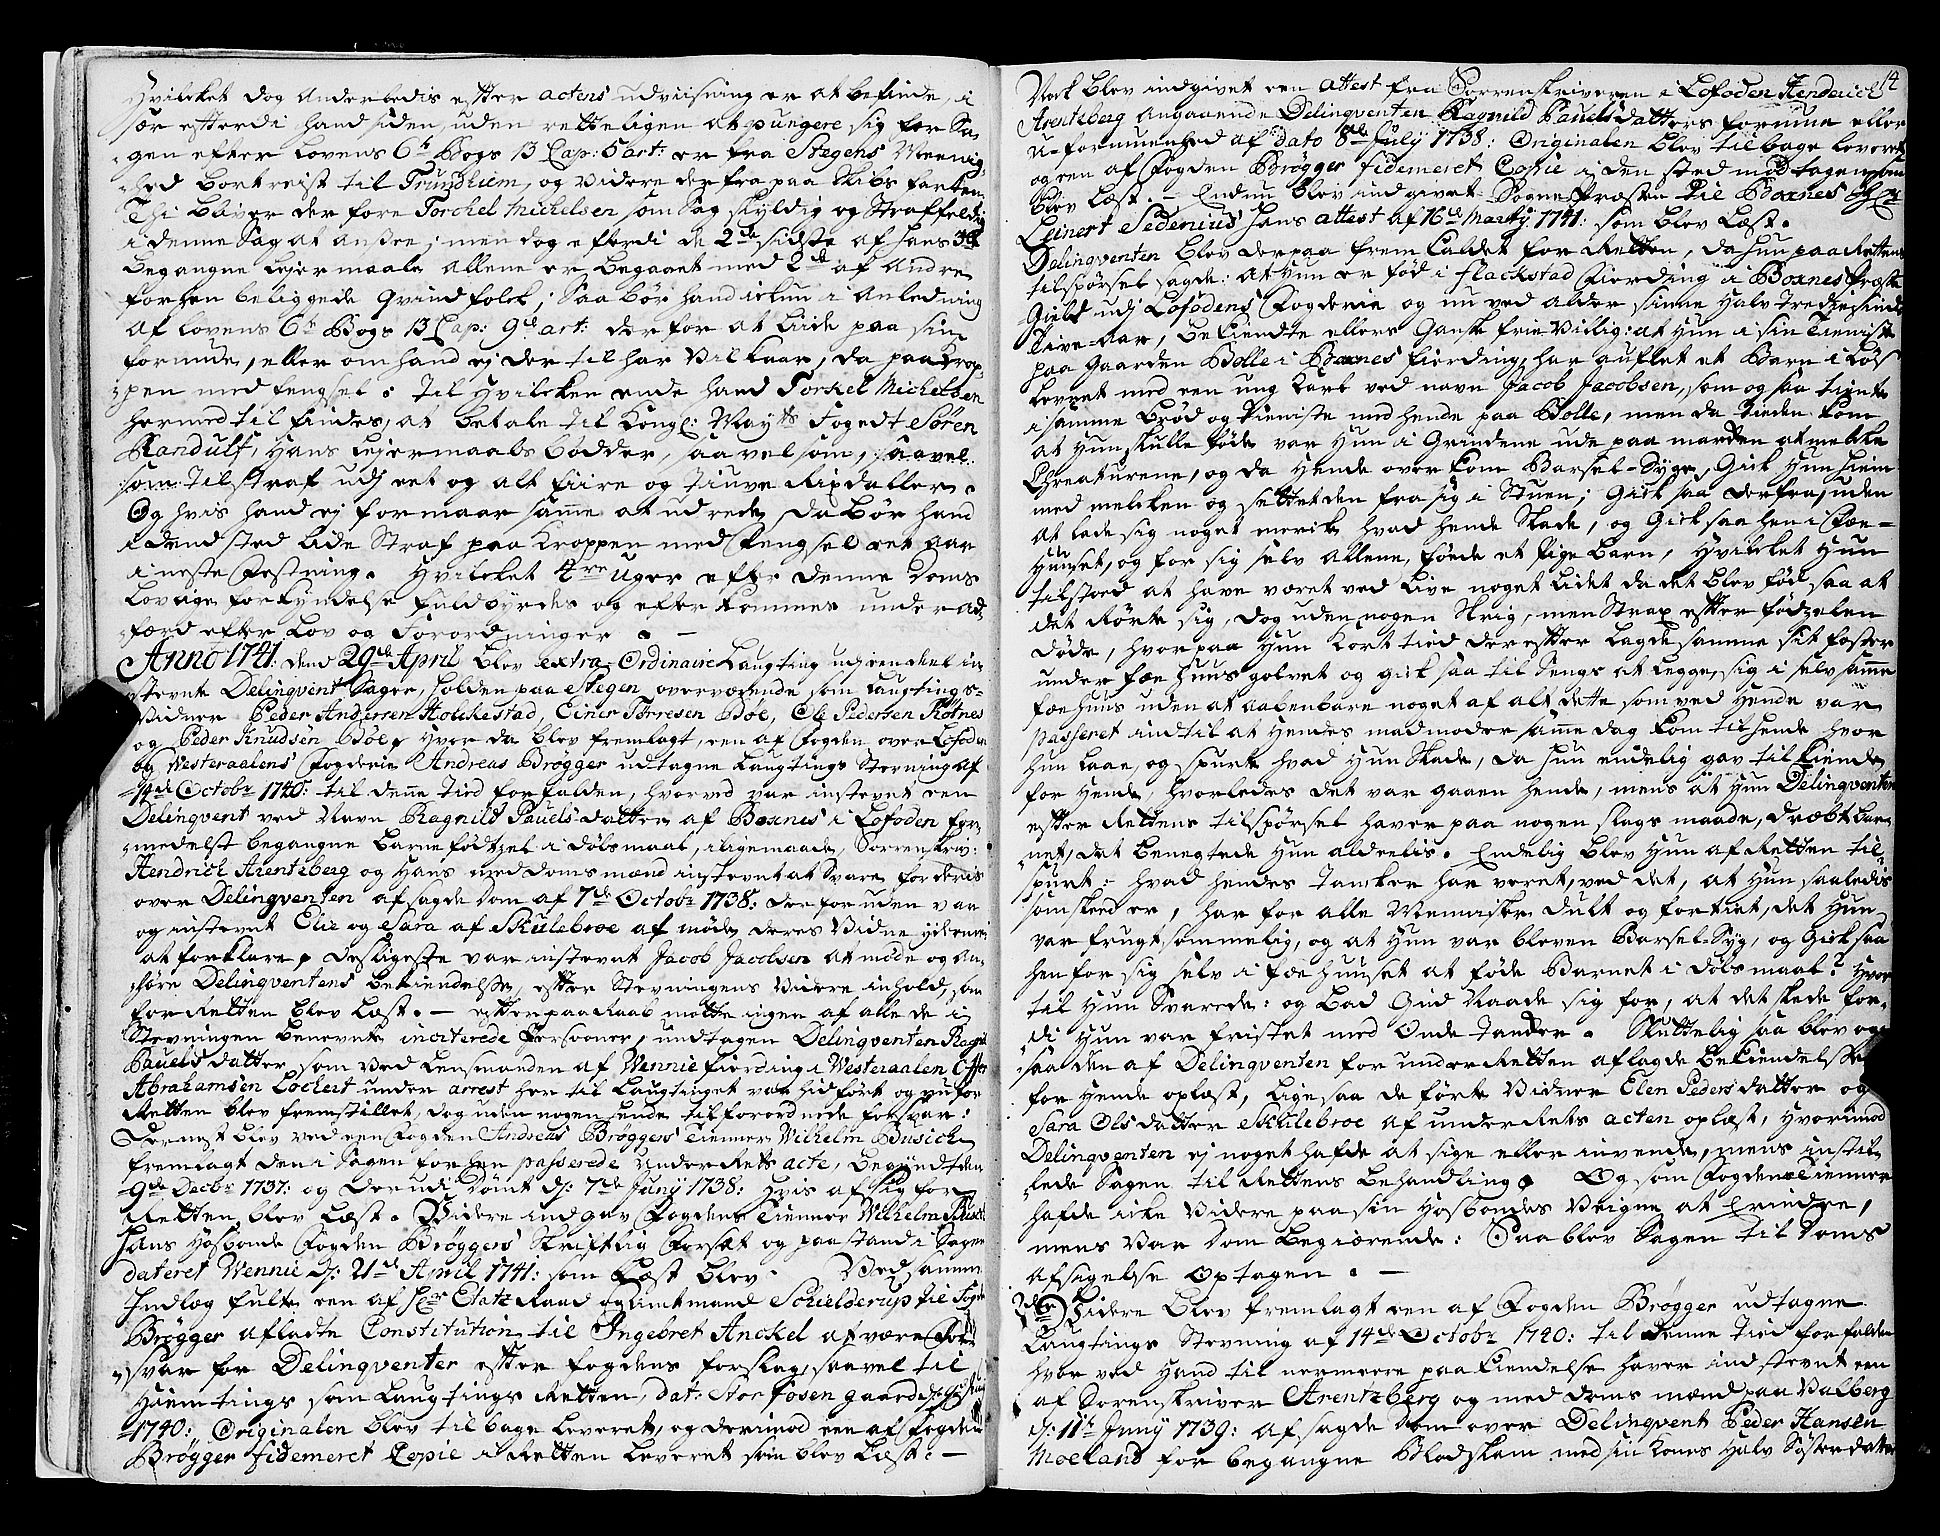 Hvilcket dog Anderledis efter actens udviisning er at befinde, i
sær efterdi hand siden, uden retteligen at pungere sig for Sa-
gen efter Lovens 6te Bogs 13 Cap: 5 art: er fra Stegens Meenig-
hed bortreist til Trundhiem, og Videre derfra paa Skibs farten,
Thi bliver der fore Torchel Michelsen som Sagskyldig og Straffeldig
i denne Sag at ansee; men dog efterdi de 2de sidste af hans 3de
begangne Lejermaale allene er begaaet med 2de af Andre
forhen beliggede Qvindfolck; Saa bør hand ickun i Anledning
af Lovens 6te Bogs 13 Cap: 9de art: derfor at Lide paa sin
formue, eller om hand ej der til har Vilkaar, da paa Krop-
pen med fengsel: til Hvilcken ende hand Torkel Michelsen
hermed tilfindes, at betale til Kongl: Mayts Fogedt Søren
Randulf, Hans Lejermaals bøder, saavelsom, saavel
som til straf udj eet og alt fiire og tiuve Rixdaller.
Og hvis hand ej formaar samme at udrede, da bør hand
i dend sted Lide Straf paa Kroppen med Fengsel eet aar
i neste Festning. Hvilcket 4re Uger efter denne Doms
Lovlige forkyndelse fuldbyrdes og efterkommes under ad-
færd efter Lov og Forordninger. -
Anno 1741: dend 29de April blev extra Ordinaire Laugting udj een deel in-
stevnte Delinqvent Sager, holden paa Stegen, overværende som Laugtings-
Vidner Peder Andersen Holckestad, Einer Torresen Bøe, Ole Pedersen Røtnes
og Peder Knudsen Bøe, Hvor da blev fremlagt, een af Fogden over Lofoden
og Westeraalens Fogderie Andreas Brøgger udtagne Laugtings Stevning af
14de Octobr 1740: til denne Tied forfalden, hvorved var instevnt een
Delinqvent ved Navn Ragnild Pauels datter af Boxnes i Lofoden for-
medelst begangne Barnefødtzel i dølsmaal, iligemaade, Sorrenskriv:
Hendrich Arentzberg og Hans meddomsmænd instevnt at Svare for deris
over Delinqventen afsagde Dom af 7de Octobr 1738: der foruden var
og instevnt Elie og Sara af Skulebroe at møde deres Vidne ydermeere
at forklare, desligeste var instevnt Jacob Jacobsen at møde og an-
høre Delinqventens bekiendelse, efter Stevningens Videre inhold, som
for Retten blev Læst. - efter paaRaab møtte ingen af alle de i
Stevningen benevnte inciterede Persooner, undtagen Delinqventen Ragnild
Pauels datter, som ved Lensmanden af Wennie fiording i Westeraalen Offe
Abrahamsen Lockert under arrest her til Laugtinget var hidført og nu for
Retten blev fremstillet, dog uden nogen hende tilforordnede forsvar:
Dernest blev ved een Fogden Andreas Brøggers Tienner Wilhelm Busich
fremlagt den i Sagen forhen passerede UnderRets acte, begyndt den
9de Decbr 1737: og derudi dømt d: 7de Juny 1738: hvis afsig for
Retten blev Læst. Videre indgav Fogdens Tienner Wilhelm Busich
Hans Hosbonde Fogden Brøggers Skriftlig Forsæt og paastand i Sagen
dateret Wennie d: 21de April 1741: som Læst blev. Ved samme
Indlæg fulte een af Hr Etatz Raad og Amtmand Schielderup til Fogden
Brøgger afladte Constitution til Ingebret Anckel at være For-
svar for Delinqventer efter fogdens forslag, saavel til
Hiemtings som Laugtings Retten, dat: Storfosen gaard d:
1740: Originalen blev tilbage Leveret, og derimod een af Fogden
Brøgger fidemeret Copie i Retten Leveret som blev Læst: -
14
Nock blev indgivet een attest fra Sorrenskriveren i Lofoden Henderich
Arentzberg angaaende Delinqventen Ragnild Pauels datters formue eller
u-formuenhed af dato 8de July 1738: Originalen blev tilbage leveret
og een af Fogden Brøgger fidemeret Copie i den sted modtagen, som
blev Læst. - Endnu blev indgivet SognePræsten til Boxnes Hr
Leinert Sedenius hans attest af 16de Marty 1741: som blev Læst.
Delinqventen blev derpaa frem kaldet for Retten, da hun paa Rettens
tilspørsel sagde: at hun er fød i Flackstad Fiording i Boxnes Præste
Gield udj Lofodens Fogderie og nu ved alder sinne halv Tredziesinds
tive Aar, bekiendte ellers gansk frie Villig: at hun i sin Tieniste
paa gaarden Bolle i Boxnes fiording, har auflet et Barn i Løs
Levnet med een ung Karl ved navn Jacob Jacobsen, som og saa tiente
i samme brød og tieniste med hende paa Bolle, men da tieden kom
at hun skulle føde var hun i Grindene ude paa marcken at melcke
Chreaturene, og da hende overkom Barsel-Syge, Gick hun hiem
med melcken og sette den fra sig i Stuen; Gick saa derfra, uden
at lade sig noget mercke hvad hende skade, og Gick saa hen i Fæe-
huuset, og for sig selv allene, føede et Pige barn, hvilcket hun
tilstoed at have været ved Live noget Lidet da det blev fød saa at
det Rørte sig, dog uden nogen Skrig, men Strax efter fødzelen
døde, hvorpaa hun kort tied derefter lagde samme sit foster
under fæehuus golvet og gick saa til sengs at legge, sig i selv samme
fæehuus uden at aabenbare noget af alt dette som ved hende var
passeret indtil at hendes madmoder samme dag kom til hende hvor
hun laae, og spurte hvad hun skade, da hun endelig gav tilkiende
for hende, hvorledes det var gaaen hende, mens at hun Delinqventen
efter Rettens tilspørsel haver paa nogen slags maade, dræbt bar-
net, det benegtede hun aldeelis. Endelig blev hun af Retten til-
spurt: hvad hendes Tancker har veret, ved det, at hun saaledis
som skeed er, har for alle Mennisker dult og fortiet, det hun
var frugtsommelig, og at hun var bleven Barsel-Syg, og Gick saa
hen for sig selv i fæehuuset at føde Barnet i dølsmaal? hvor
til hun Svarede: og bad Gud Naade sig for, at det skede for-
di hun var fristet med Onde Tancker. Sluttelig saa blev og-
saa den af Delinqventen for underRetten aflagde bekiendelse
for hende oplæst, Ligesaa de førte Vidner Elen Peders datter og
Sara Olsdatter Skulebroe af underRets acten oplæst, hvorimod
Delinqventen ej noget hafde at sige eller invende, mens instil-
lede Sagen til Rettens behandling. Og som Fogdens Tienner
hafde icke Videre paa sin Hosbondes Veigne at Erindre,
mens Var Dom begierende: Saa blev Sagen til Doms
afsigelse Optagen. -
2de Videre blev fremlagt een af Fogden Brøgger udtagne
Laugtings Stevning af 14de Octobr 1740: til denne Tied forfalden
hvor ved hand til nermere paakiendelse haver indstevnt een
af Sorenskriver Arentzberg og meddoms mænd paa Valberg
d: 11te Juny 1739: afsagde Dom over Delinqvent Peder Hansen
Moeland for begangne Blodskam med sin Kones Halv Søsterdatter